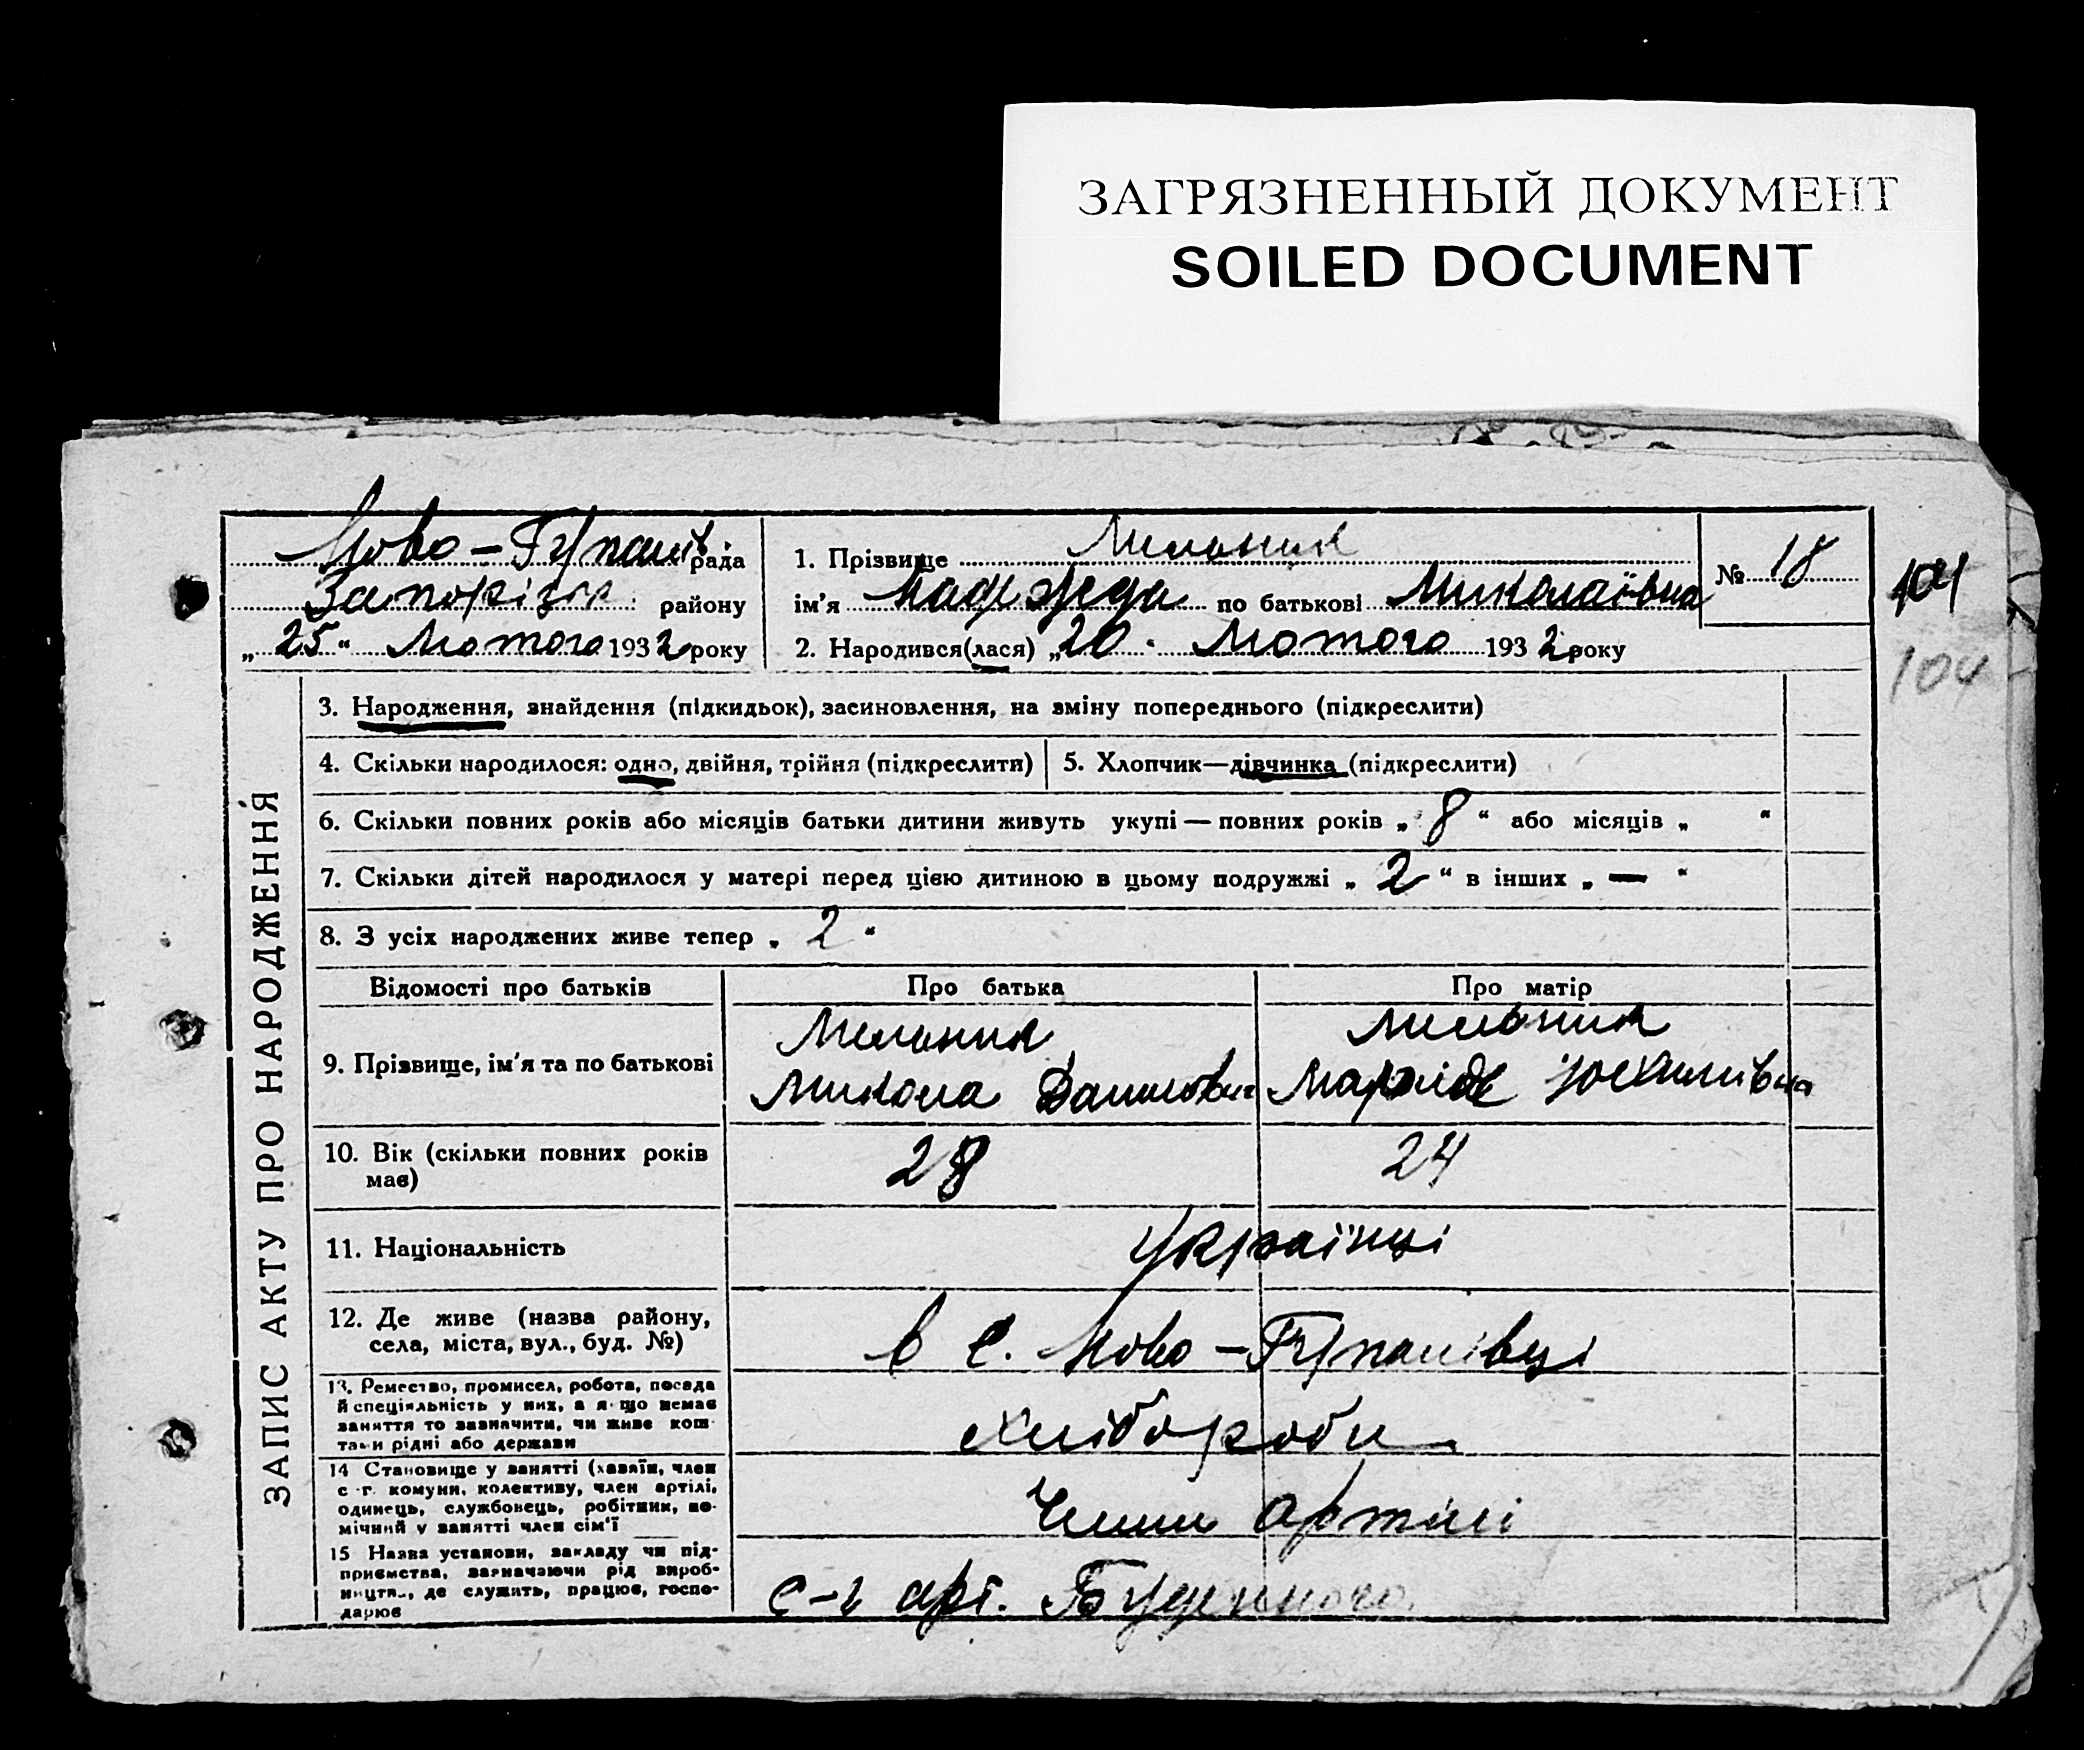 ЗАГРЯЗНЕННЫЙ ДОКУМЕНТ
SOILED DOCUMENT
Ново - Гупалів. рада
Запорізьк. району
„25“ Лютого 1932 року
1. Прізвище Мельник
ім'я Надежда по батькові Миколаївна
2. Народився(лася) „20. Лютого 1932 року
№ 18
104
104
ЗАПИС АКТУ ПРО НАРОДЖЕННЯ
3. Народження, знайдення (підкидьок), засиновлення, на зміну попереднього (підкреслити)
4. Скільки народилося: одно, двійня, трійня (підкреслити) 5. Хлопчик—дівчинка (підкреслити)
6. Скільки повних років або місяців батьки дитини живуть укупі — повних років „ 8 “ або місяців „ “
7. Скільки дітей народилося у матері перед цією дитиною в цьому подружжі „ 2 “ в інших „ — “
8. З усіх народжених живе тепер „ 2 “
Відомості про батьків Про батька Про матір
9. Прізвище, ім'я та по батькові
Мельник Мельник
Микола Юхимівна
10. Вік (скільки повних років
має)
28 24
11. Національність Українці
12. Де живе (назва району,
села, міста, вул., буд. №)
в с. Ново - Гупалівці
13. Ремество, промисел, робота, посада
й спеціяльність у них, а я що немає
заняття то зазначити, чи живе кош-
тами рідні або держави
Хлібороби
14 Становище у занятті (хазяїн, член
с-г. комуни, колективу, член артілі,
одинець, службовець, робітник, по-
мічний у занятті член сім'ї
Члени артілі
15 Назва установи, закладу чи під-
приємства, зазначаючи рід вироб-
ництв., де служить, працює, госпо-
дарює
с-г арт. Буденного